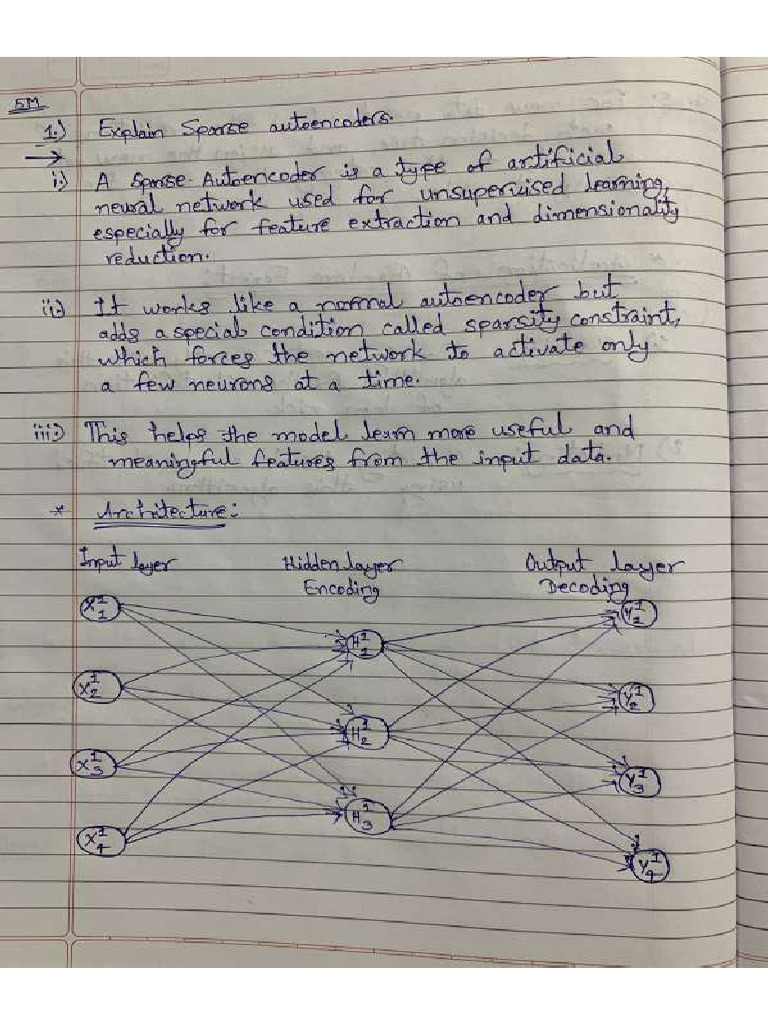 5M
1.) Explain Sparse autoencoders.
→
i.) A Sparse Autoencoder is a type of artificial
neural network used for unsupervised learning,
especially for feature extraction and dimensionality
reduction.
ii.) It works like a normal autoencoder but
adds a special condition called sparsity constraint,
which forces the network to activate only
a few neurons at a time.
iii.) This helps the model learn more useful and
meaningful features from the input data.
* Architecture:
Input layer Hidden layer Output layer
Encoding Decoding
X¹₁ Y¹₂
H¹₁
X¹₂ Y¹₂
H¹₂
X¹₃ Y¹₃
H¹₃
X¹₄ Y¹₄